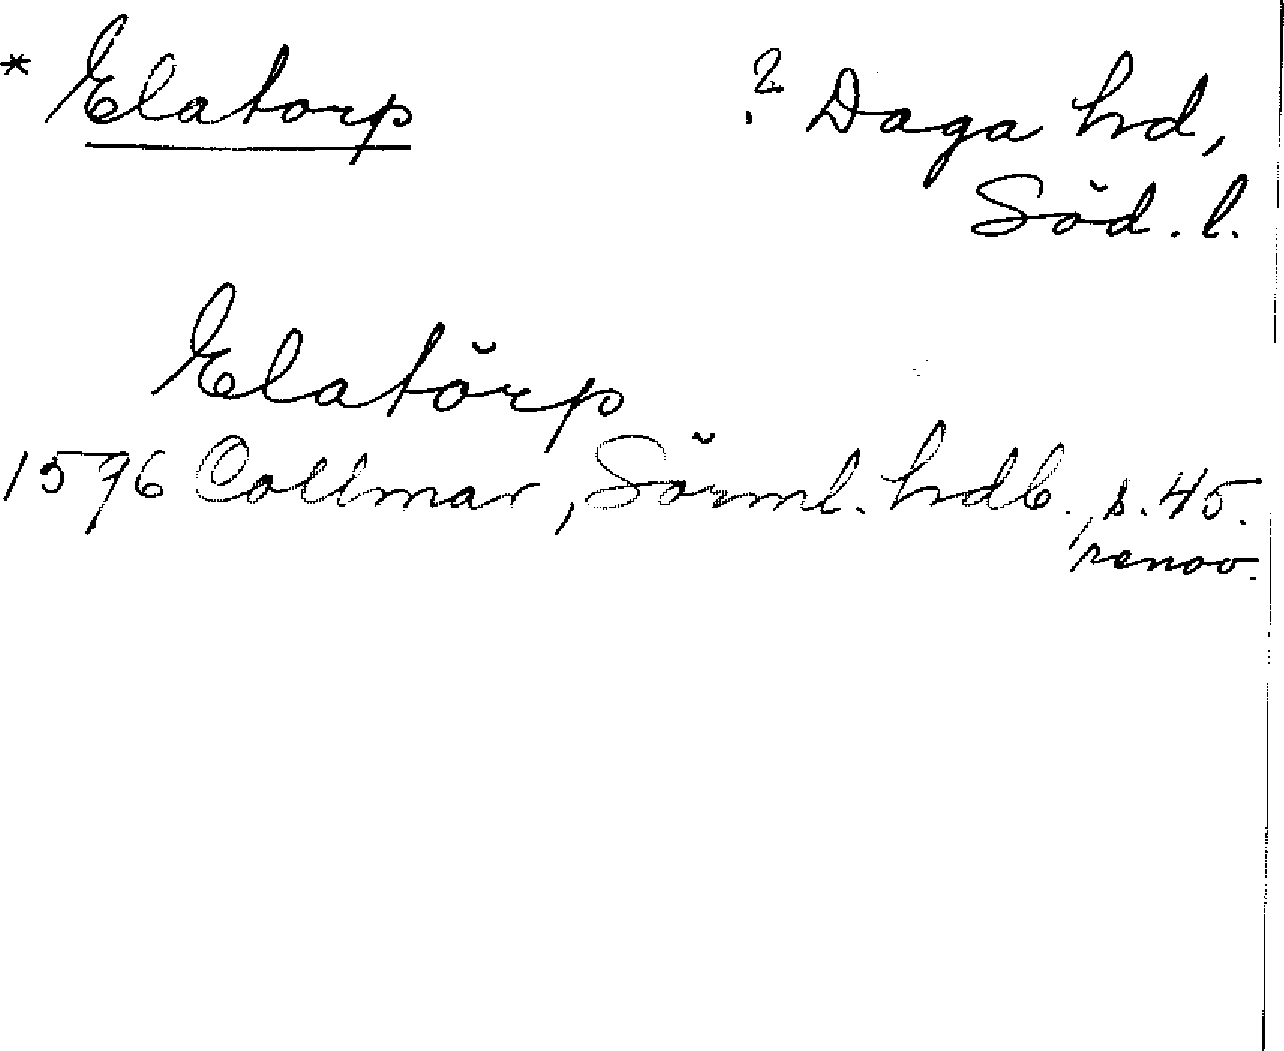 * Elatorp ? Daga hd,
Söd. l.
Elatörp
1576 Collmar, Sörml. hdb., s. 45.
renov.